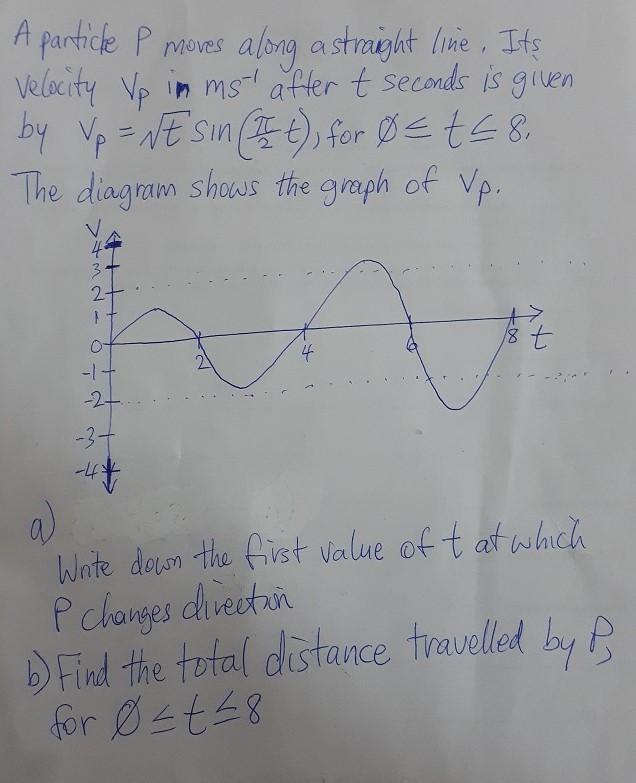 A particle P moves along a straight line. Its
velocity Vp in ms⁻¹ after t seconds is given
by Vp = √t sin(π/2 t), for 0 ≤ t ≤ 8.
The diagram shows the graph of Vp.
V
4
3
2
1
0
-1
-2
-3
-4
2
4
6
8
t
a)
Write down the first value of t at which
P changes direction
b) Find the total distance travelled by P,
for 0 ≤ t ≤ 8